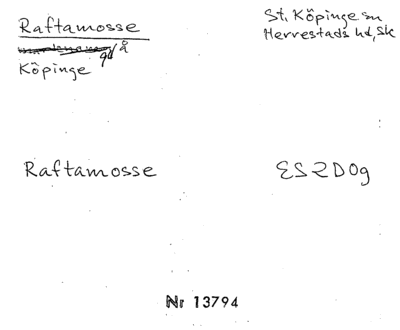 Raftamosse
gd å
Köpinge
St. Köpinge sn
Herrestads hd, Sk
Raftamosse
ES2D0g
Nr 13794